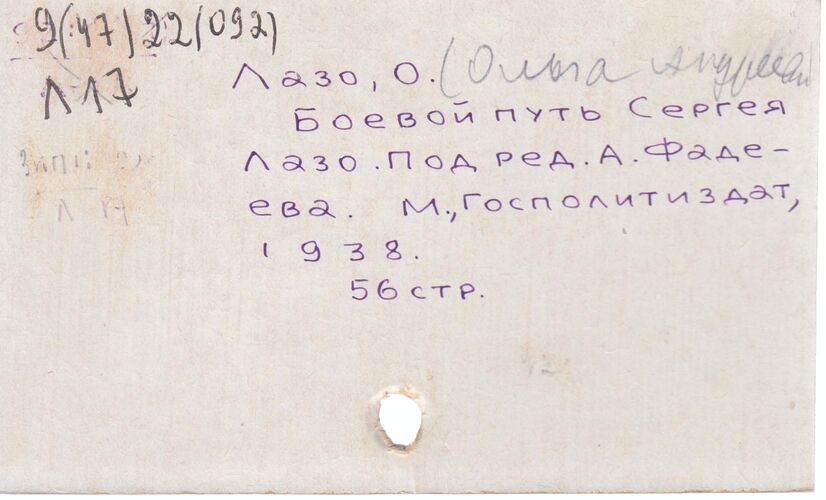 9(47)22(092)
Л17
Лазо, О. (Ольга
Боевой путь Сергея
Лазо. Под ред. А. Фаде-
ева. М., Госполитиздат,
1938.
56 стр.
Л 17